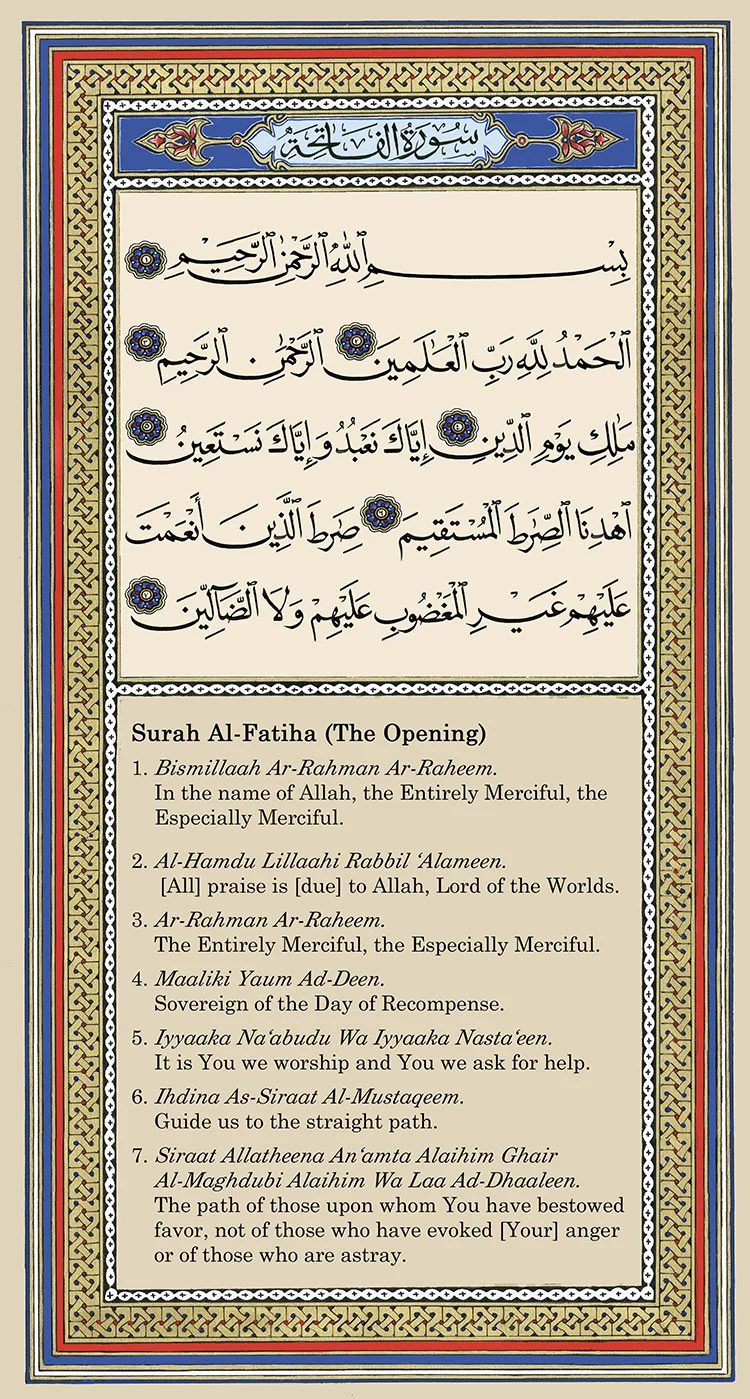 سُورَةُ الفَاتِحَةِ
بِسْمِ ٱللَّهِ ٱلرَّحْمَٰنِ ٱلرَّحِيمِ ١
ٱلْحَمْدُ لِلَّهِ رَبِّ ٱلْعَٰلَمِينَ ٢ ٱلرَّحْمَٰنِ ٱلرَّحِيمِ ٣
مَٰلِكِ يَوْمِ ٱلدِّينِ ٤ إِيَّاكَ نَعْبُدُ وَإِيَّاكَ نَسْتَعِينُ ٥
ٱهْدِنَا ٱلصِّرَٰطَ ٱلْمُسْتَقِيمَ ٦ صِرَٰطَ ٱلَّذِينَ أَنْعَمْتَ
عَلَيْهِمْ غَيْرِ ٱلْمَغْضُوبِ عَلَيْهِمْ وَلَا ٱلضَّآلِّينَ ٧
Surah Al-Fatiha (The Opening)
1. Bismillaah Ar-Rahman Ar-Raheem.
In the name of Allah, the Entirely Merciful, the
Especially Merciful.
2. Al-Hamdu Lillaahi Rabbil ‘Alameen.
[All] praise is [due] to Allah, Lord of the Worlds.
3. Ar-Rahman Ar-Raheem.
The Entirely Merciful, the Especially Merciful.
4. Maaliki Yaum Ad-Deen.
Sovereign of the Day of Recompense.
5. Iyyaaka Na‘abudu Wa Iyyaaka Nasta‘een.
It is You we worship and You we ask for help.
6. Ihdina As-Siraat Al-Mustaqeem.
Guide us to the straight path.
7. Siraat Allatheena An‘amta Alaihim Ghair
Al-Maghdubi Alaihim Wa Laa Ad-Dhaaleen.
The path of those upon whom You have bestowed
favor, not of those who have evoked [Your] anger
or of those who are astray.